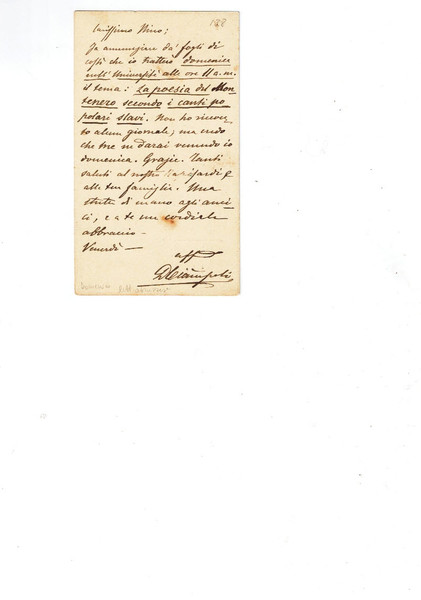 128
Carissimo Nino;
Fa annunziare da' fogli di
costì che io tratterò domenica
nell'Università alle ore 11 a.m.
il tema: La poesia del Mon-
tenero secondo i canti po
polari slavi. Non ho ricevu-
to alcun giornale; ma credo
che me ne darai venendo io
domenica. Grazie. Tanti
saluti al nostro
alla tua famiglia. Una
stretta di mano agli ami-
ci, e a te un cordiale
abbraccio –
Venerdì –
aff
DCiampoli